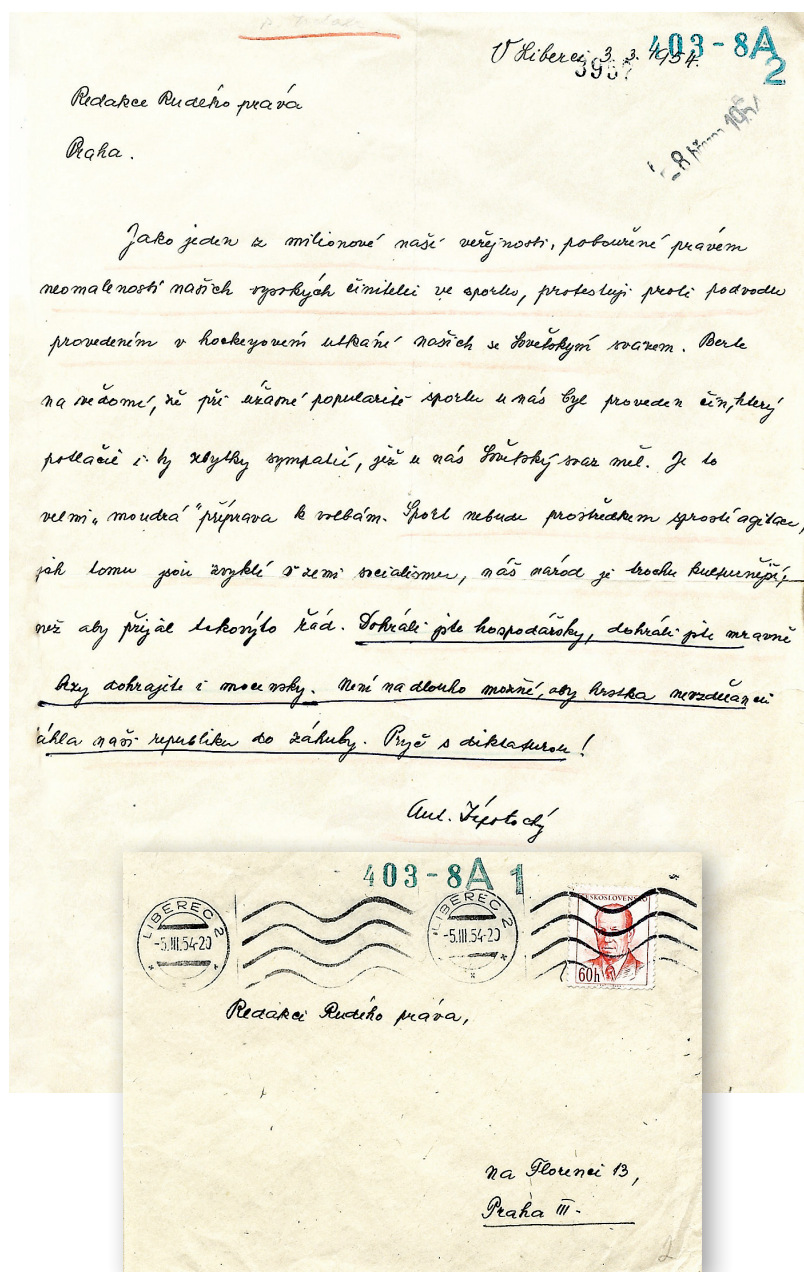 V Liberci, 3. 3. 1954.
403-8A
2
3967
Redakce Rudého práva
Praha.
-8
Jako jeden z milionové naší veřejnosti, pobouřené právem
neomaleností našich vysokých činitelů ve sportu, protestuji proti podvodu
provedeném v hockeyovém utkání našich se Sovětským svazem. Berte
na vědomí, že při úžasné popularitě sportu u nás byl proveden čin, který
potlačil i ty zbytky sympatií, jež u nás Sovětský svaz měl. Je to
velmi „moudrá" příprava k volbám. Sport nebude prostředkem sprosté agitace,
jak tomu jsou zvyklí v zemi socialismu, náš národ je trochu kulturnější,
než aby přijal takovýto řád. Dohráli jste hospodářsky, dohráli jste mravně
brzy dohrajete i mocensky. Není nadlouho možné, aby hrstka nevzdělanců
táhla naši republiku do záhuby. Pryč s diktaturou!
Ant. Zápotocký
403-8A 1
LIBEREC 2
-5.III.54-20
LIBEREC 2
-5.III.54-20
ČESKOSLOVENSKO
60h
Redakci Rudého práva,
Na Florenci 13,
Praha III.-
2